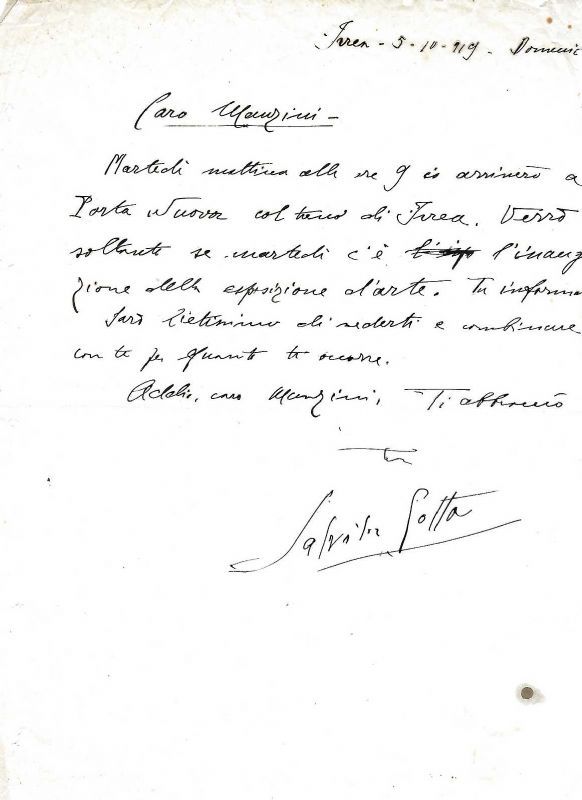 Ivrea - 5-10-919. Domenic
Caro Manzini -
Martedì mattina alle ore 9 io arriverò a
Porta Nuova col treno di Ivrea. Verrò
soltanto se martedì c'è l'inaug
zione della esposizione d'arte. Tu informa
Sarò lietissimo di vederti e combinare
con te per quanto ti occorre.
Addio, caro Manzini, Ti abbraccio
tuo
Salvator Gotta